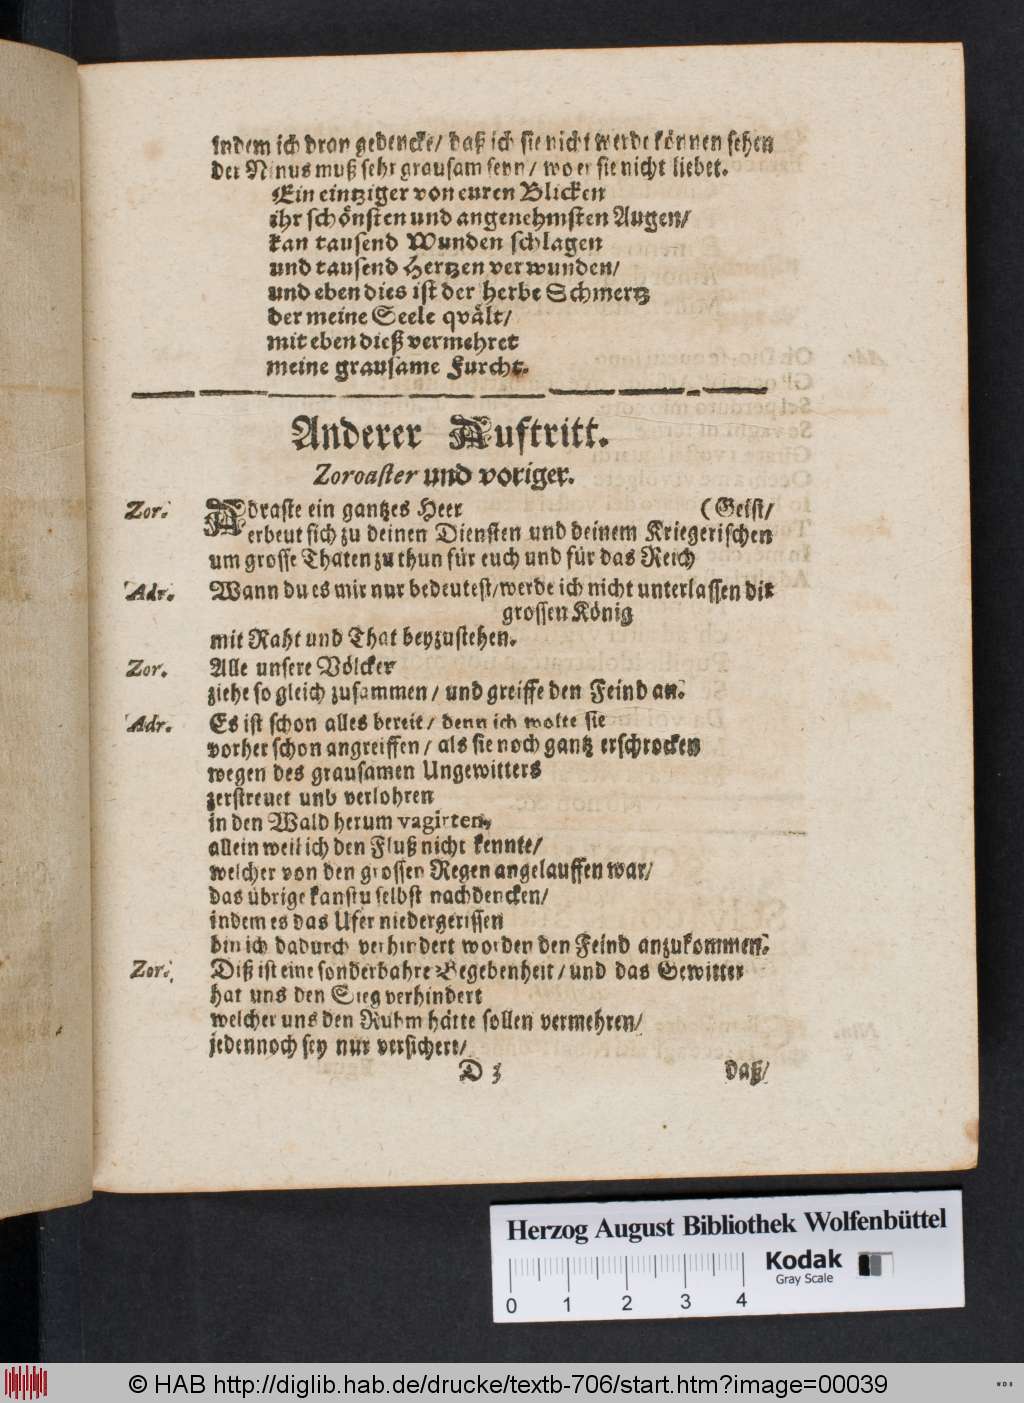 indem ich dran gedencke/ daß ich sie nicht werde können sehen
der Ninus muß sehr grausam seyn/ wo er sie nicht liebet.
Ein eintziger von euren Blicken
ihr schönsten und angenehmsten Augen/
kan tausend Wunden schlagen
und tausend Hertzen verwunden/
und eben dies ist der herbe Schmertz
der meine Seele qvält/
mit eben dieß vermehret
meine grausame Furcht.
Anderer Auftritt.
Zoroaster und voriger.
Zor. Adraste ein gantzes Heer (Geist/
erbeut sich zu deinen Diensten und deinem Kriegerischen
um grosse Thaten zu thun für euch und für das Reich
Adr. Wann du es mir nur bedeutest/ werde ich nicht unterlassen die
grossen König
mit Raht und That beyzustehen.
Zor. Alle unsere Völcker
ziehe so gleich zusammen/ und greiffe den Feind an.
Adr. Es ist schon alles bereit/ denn ich wolte sie
vorher schon angreiffen/ als sie noch gantz erschrocken
wegen des grausamen Ungewitters
zerstreuet und verlohren
in den Wald herum vagirten,
allein weil ich den Fluß nicht kennte/
welcher von den grossen Regen angelauffen war/
das übrige kanstu selbst nachdencken/
indem es das Ufer niedergerissen
bin ich dadurch verhindert worden den Feind anzukommen.
Zor. Diß ist eine sonderbahre Begebenheit/ und das Gewitter
hat uns den Sieg verhindert
welcher uns den Ruhm hätte sollen vermehren/
jedennoch sey nur versichert/
D 3 daß/
Herzog August Bibliothek Wolfenbüttel
Kodak
Gray Scale
0 1 2 3 4
© HAB http://diglib.hab.de/drucke/textb-706/start.htm?image=00039